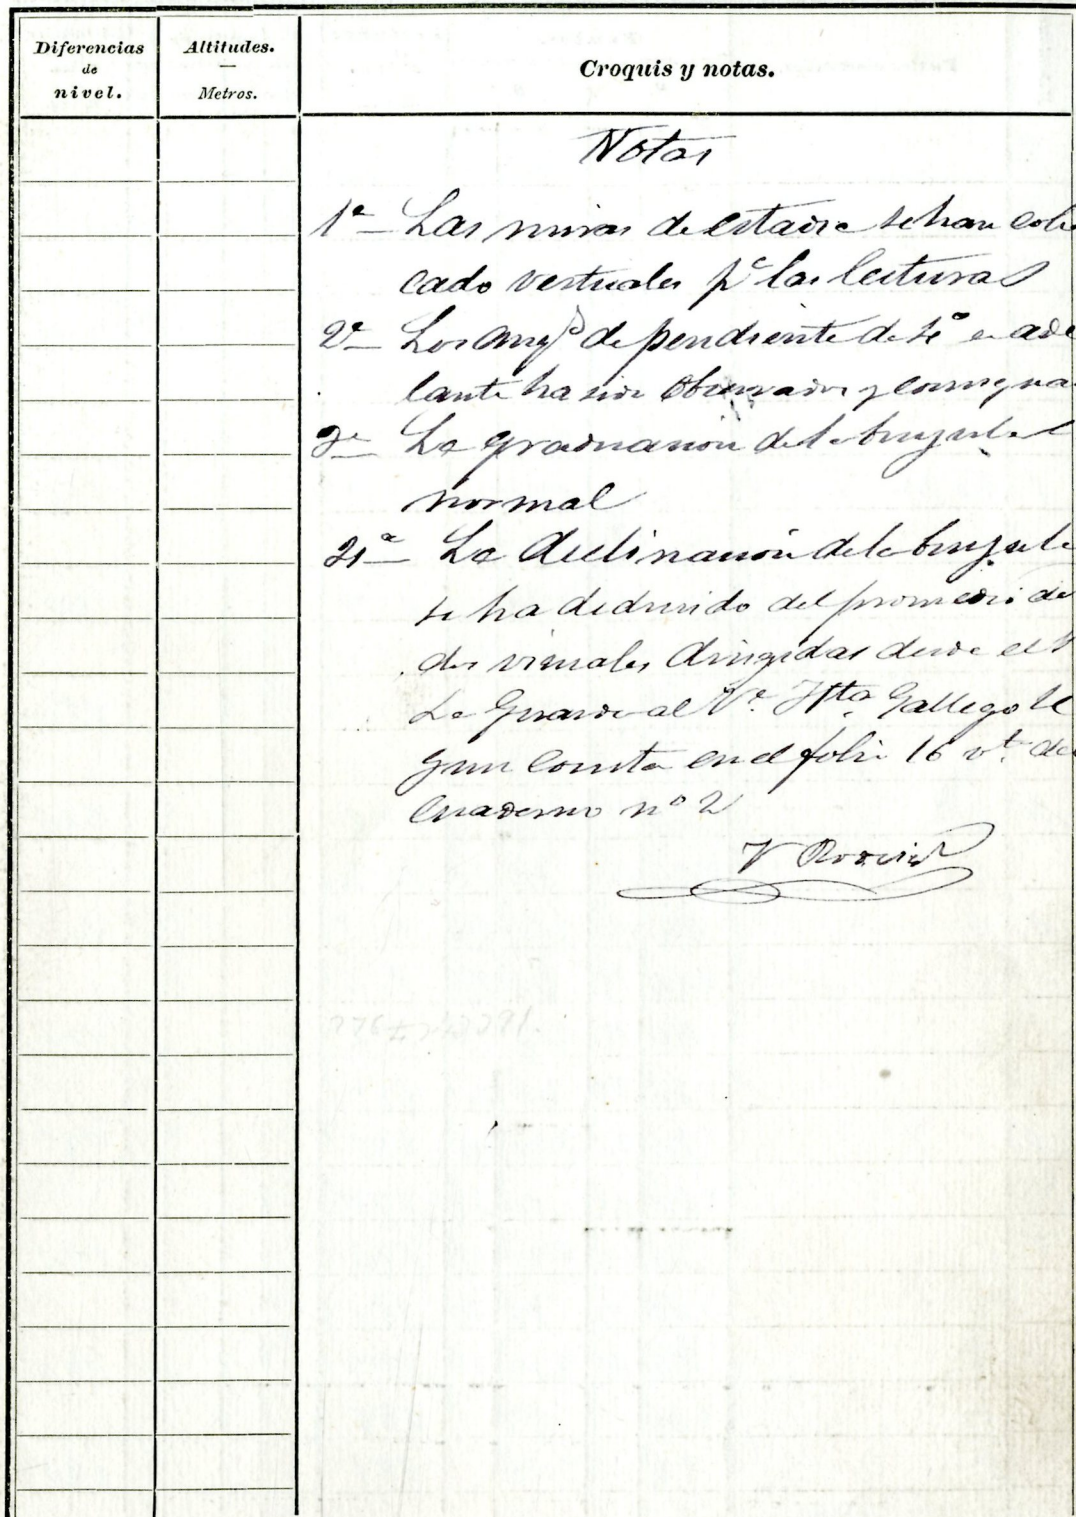 Diferencias
de
nivel.
Altitudes.
Metros.
Croquis y notas.
Notas
1ª Las miras de estadia se han colo
cado verticales pª las lecturas
2ª Los angs de pendiente de 1º en ade
lante ha sido observados y consigna
3ª La graduacion de la brujula
normal
4ª La declinacion de la brujula
se ha deducido del promedio de
dos visuales dirigidas desde el
La Guardia al Vº Gallego se
gun consta en el folio 16 vtº del
cuaderno nº 2